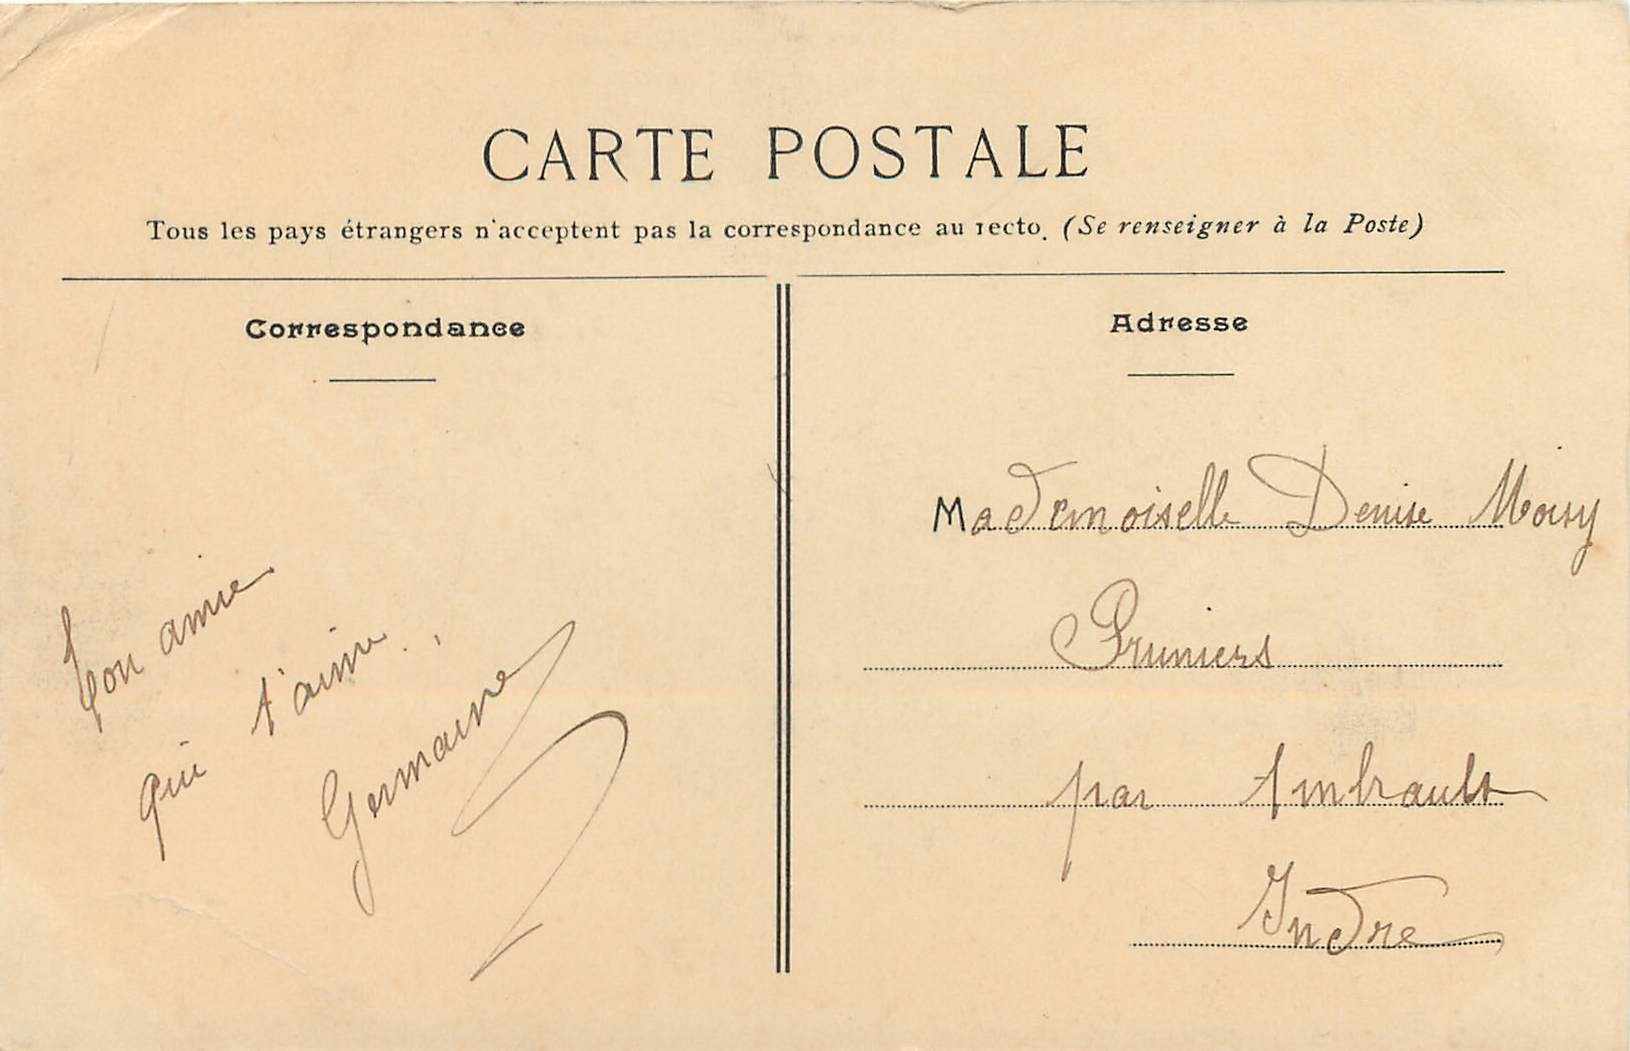 CARTE POSTALE
Tous les pays étrangers n'acceptent pas la correspondance au recto. (Se renseigner à la Poste)
Correspondance
Ton amie
qui t'aime.
Germaine
Adresse
Mademoiselle Denise Moisy
Pruniers
par Ambrault
Indre